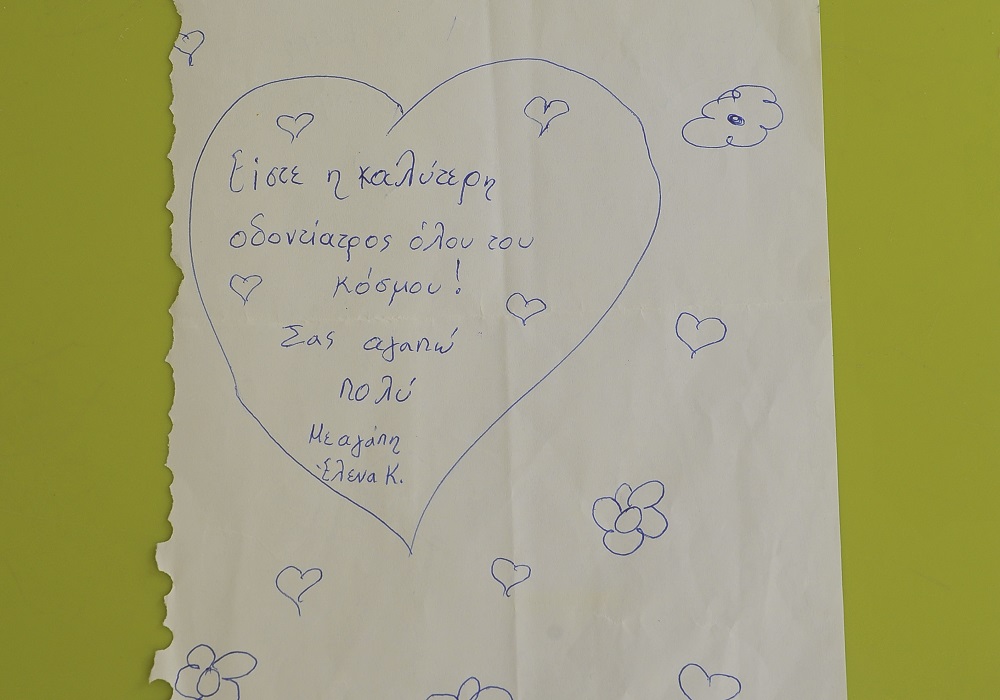 Είστε η καλύτερη
οδοντίατρος όλου του
κόσμου!
Σας αγαπώ
πολύ
Με αγάπη
Έλενα Κ.